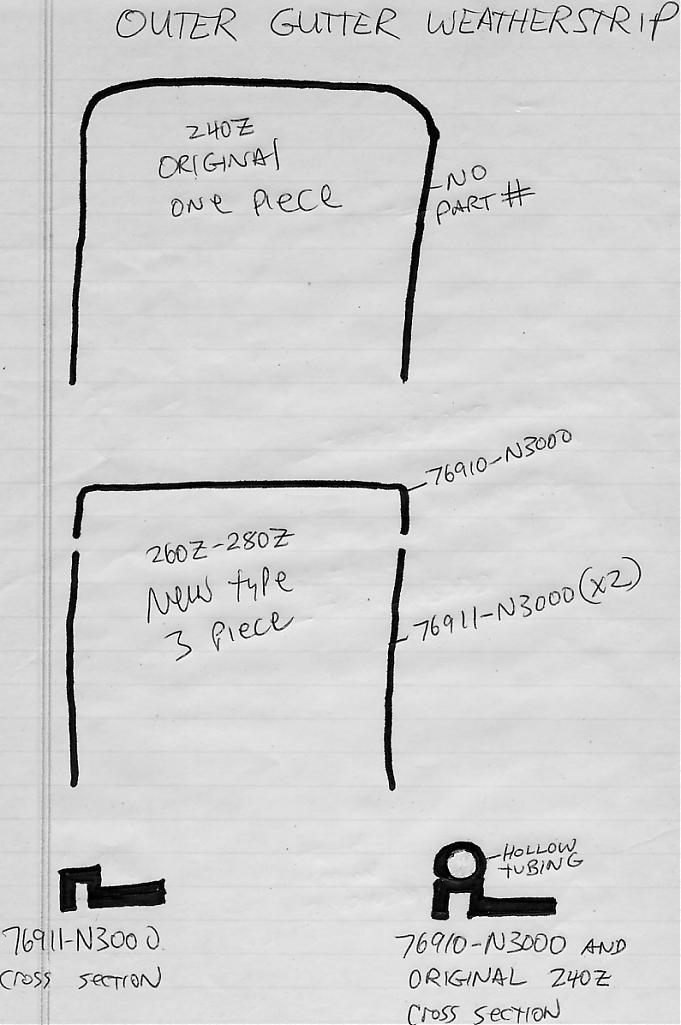 OUTER GUTTER WEATHERSTRIP
240Z
ORIGINAL
ONE PIECE
NO
PART #
76910-N3000
260Z-280Z
NEW TYPE
3 PIECE
76911-N3000 (X2)
HOLLOW
TUBING
76911-N3000
CROSS SECTION
76910-N3000 AND
ORIGINAL 240Z
CROSS SECTION